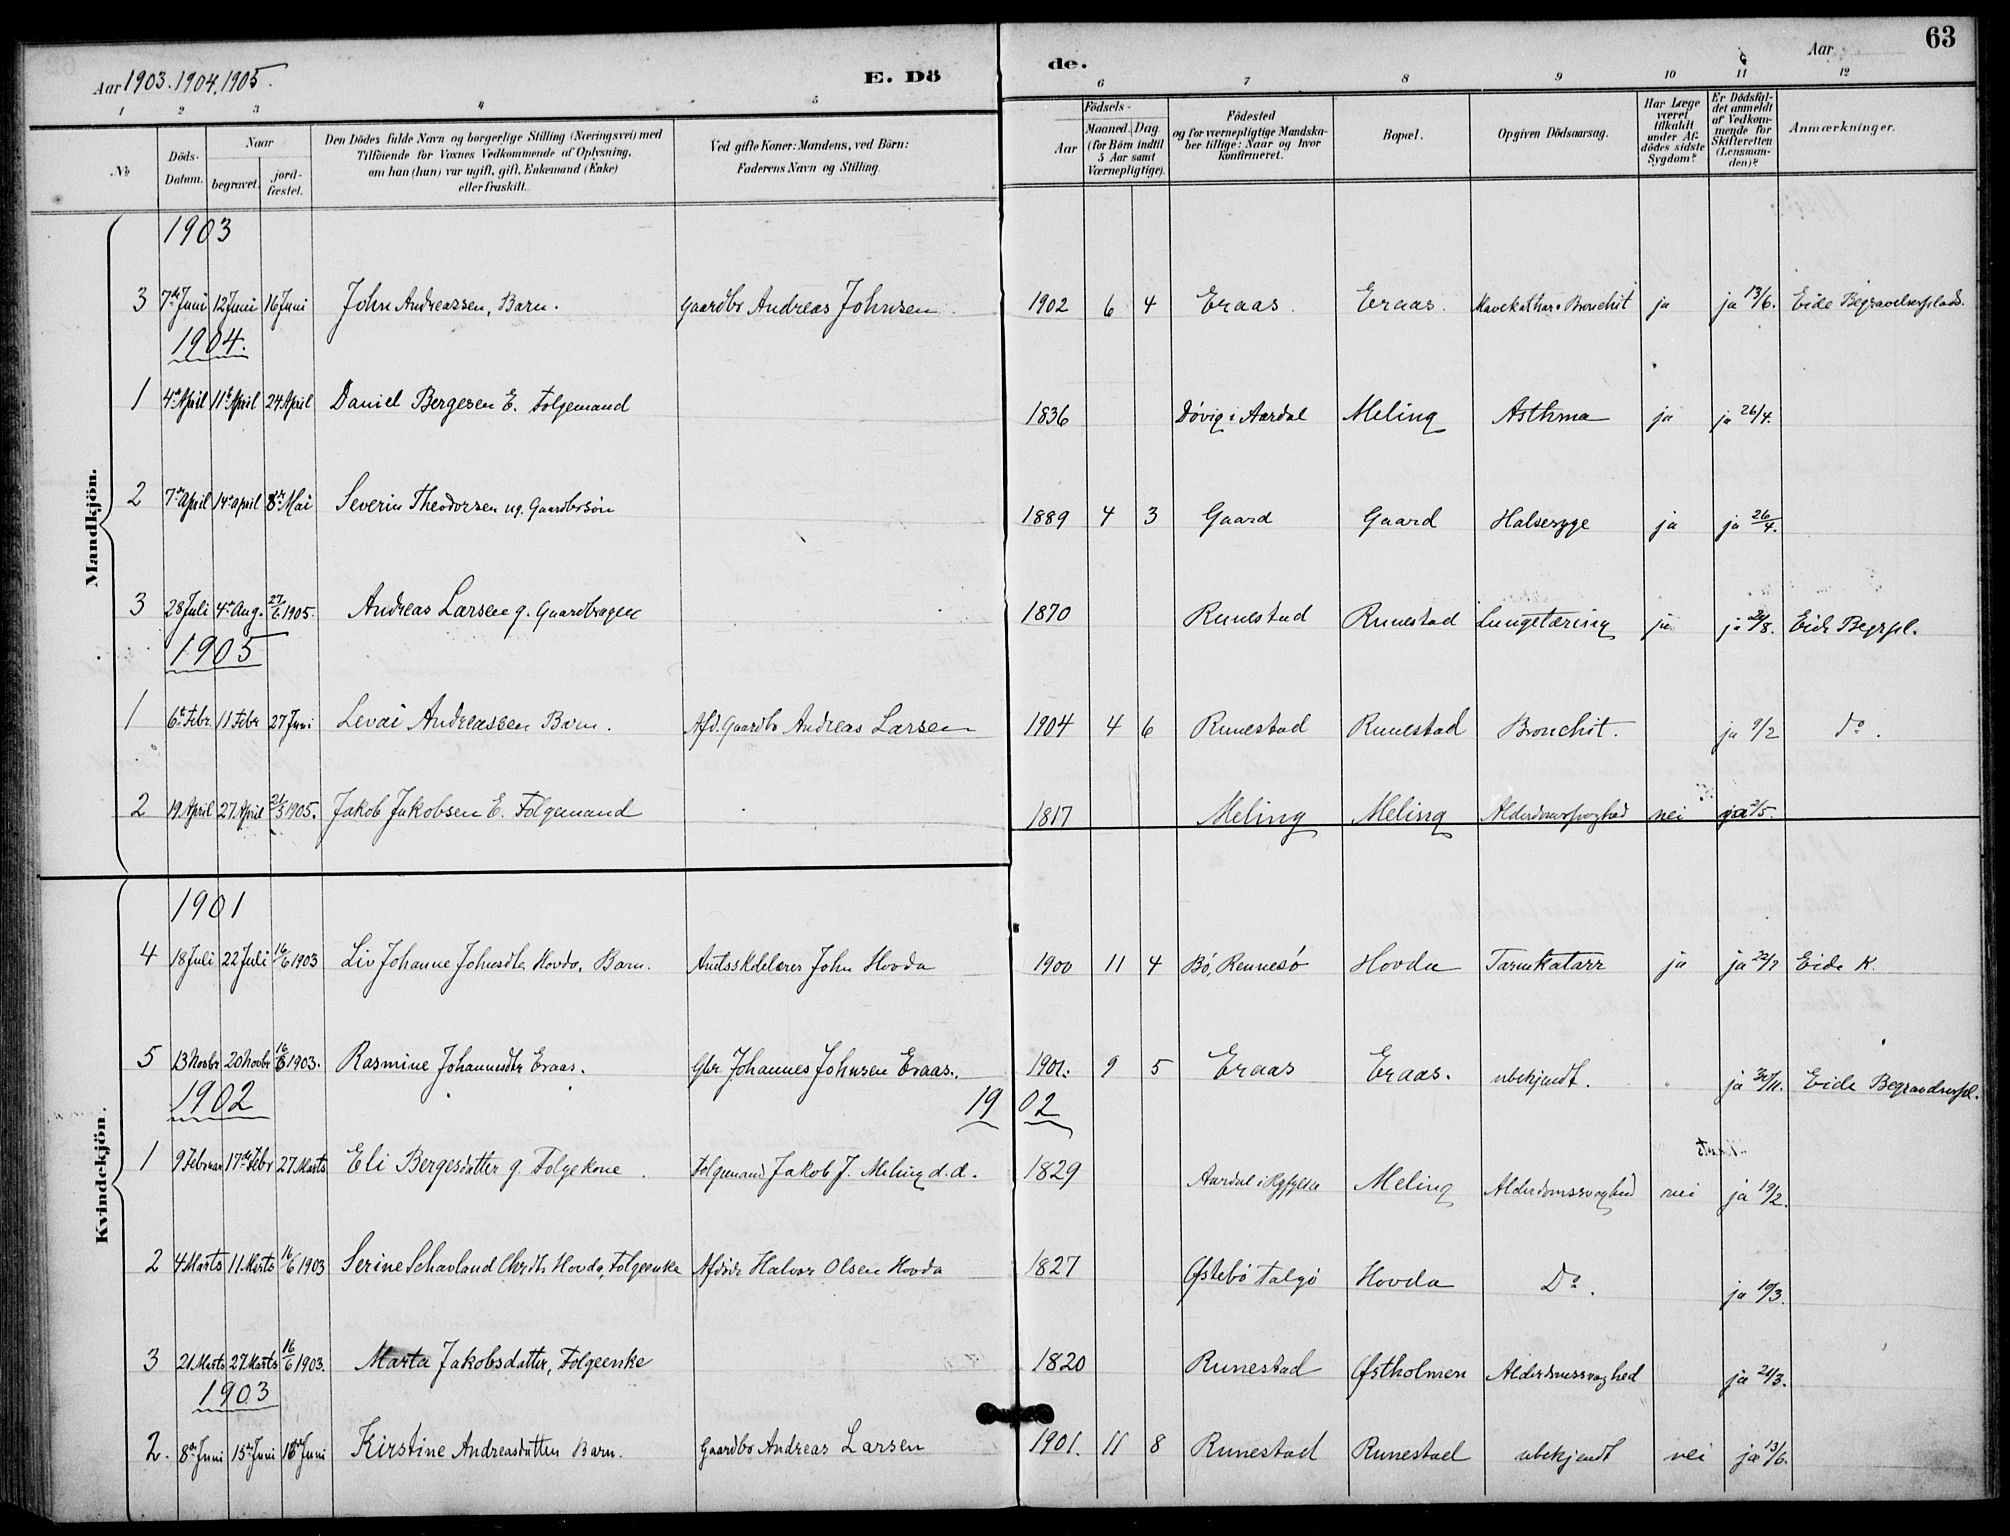 63
Aar 1903. 1904. 1905.
E. Dö de.
Aar
1 2 3 4 5 6 7 8 9 10 11 12
No
Döds-Datum.
Naar
begravet.
jord-fæstet.
Den Dödes fulde Navn og borgerlige Stilling (Næringsvei) med
Tilföiende for Voxnes Vedkommende af Oplysning,
om han (hun) var ugift, gift, Enkemand (Enke)
eller fraskilt.
Ved gifte Koner: Mandens, ved Börn:
Faderens Navn og Stilling.
Födsels-
Aar
Maaned. Dag.
(for Börn indtil
5 Aar samt
Værnepligtige).
Födested
og for værnepligtige Mandska-
ber tillige: Naar og hvor
konfirmeret.
Bopæl.
Opgiven Dödsaarsag.
Har Læge
været
tilkaldt
under Af-
dödes sidste
Sygdom?
Er Dödsfal-
det anmeldt
af Vedkom-
mende for
Skifteretten
(Lensman-
den)?
Anmærkninger.
Mandkjön.
1903
3 7de Juni 12 Juni 16 Juni John Andreassen, Barn. Gaardbr Andreas Johnsen. 1902 6 4 Eraas. Eraas. Mavekathar. Bronchit ja ja 13/6. Eide Begravelsesplads.
1904.
1 4de April 11te April 24 April Daniel Bergesen E. Folgemand 1836 Døvig i Aardal Meling Asthma ja ja 26/4.
2 7de April 14de April 8de Mai Severin Theodorsen ug. Gaardbrsön 1889 4 3 Gaard Gaard Halsesyge ja ja 26/4.
3 28 Juli 4de Aug. 27/6 1905. Andreas Larsen g. Gaardbruger 1870 Runestad Runestad Lungetæring ja ja /8. Eide Begrpl.
1905
1 6te Febr. 11 Febr 27 Juni Levai Andreassen Barn. Afd. Gaardbr Andreas Larsen 1904 4 6 Runestad Runestad Bronchit. ja 9/2 do.
2 19 April 27 April 21/5 1905. Jakob Jakobsen E. Folgemand 1817 Meling Meling Alderdomssvaghed nei ja 2/5.
Kvindekjön.
1901
4 18 Juli 22 Juli 16/6 1903 Liv Johanne Johnsdtr Hovda, Barn. Amtsskolelærer John Hovda 1900 11 4 Bö, Rennesö Hovda Tarmkatarr ja ja 22/7 Eide K.
5 13 Novbr 20 Novbr 16/6 1903. Rasmine Johannesdtr Eraas. Gbr. Johannes Johnsen Eraas. 1901. 9 5 Eraas Eraas. ubekjendt. " ja /11. Eide Begravelsespl.
1902 1902
1 9 Februar 17de Febr 27 Marts Eli Bergesdatter g. Folgekone Folgemand Jakob J. Meling d. d. 1829 Aardal i Ryfylke Meling Alderdomssvaghed nei ja 19/2.
2 4 Marts 11 Marts 16/6 1903 Serine Schavland Chrdtr Hovda, Folgeenke Afdöde Halvor Olsen Hovda 1827 Østebö Talgö Hovda Do. ja 10/3.
3 21 Marts 27 Marts 16/6 1903. Marta Jakobsdatter, Folgeenke 1820 Runestad Østholmen Alderdomssvaghed ja 24/3.
1903
2. 8de Juni 15de Juni 16de Juni Kirstine Andreasdatter Barn. Gaardbr Andreas Larsen 1901. 11 8 Runestad Runestad ubekjendt nei ja 13/6.